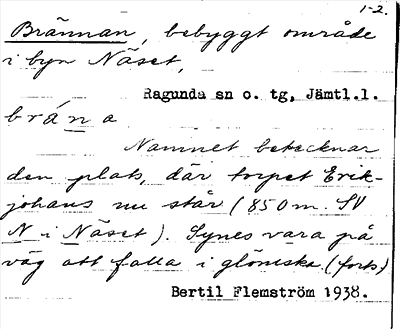 1-2.
Brännan, bebyggt område
i byn Näset,
Ragunda sn o. tg, Jämtl.l.
brána
Namnet betecknar
den plats, där torpet Erik-
johans nu står (850 m. SV
N i Näset). Synes vara på
väg att falla i glömska. (forts.)
Bertil Flemström 1938.